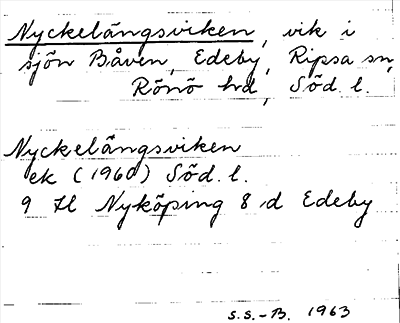 Nyckelängsviken, vik i
sjön Båven, Edeby, Ripsa sn,
Rönö hd, Söd. l.
Nyckelängsviken
ek (1960) Söd. l.
9 H Nyköping 8 d Edeby
S.S.-B. 1963